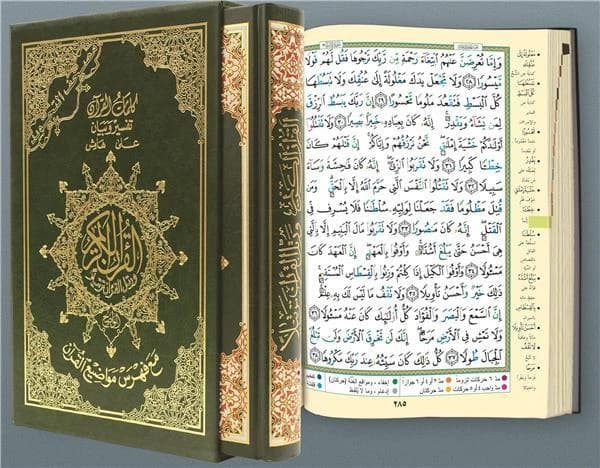 كلمات القرآن
تفسير وبيان
على هامش
القرآن الكريم
ورتل القرآن ترتيلا
مع فهرس مواضيع القرآن
القرآن الكريم ورتل القرآن ترتيلا
وَإِمَّا تُعْرِضَنَّ عَنْهُمُ ٱبْتِغَآءَ رَحْمَةٍ مِّن رَّبِّكَ تَرْجُوهَا فَقُل لَّهُمْ قَوْلًا
مَّيْسُورًا ٢٨ وَلَا تَجْعَلْ يَدَكَ مَغْلُولَةً إِلَىٰ عُنُقِكَ وَلَا تَبْسُطْهَا
كُلَّ ٱلْبَسْطِ فَتَقْعُدَ مَلُومًا مَّحْسُورًا ٢٩ إِنَّ رَبَّكَ يَبْسُطُ ٱلرِّزْقَ
لِمَن يَشَآءُ وَيَقْدِرُ إِنَّهُۥ كَانَ بِعِبَادِهِۦ خَبِيرًۢا بَصِيرًا ٣٠ وَلَا تَقْتُلُوٓا۟
أَوْلَٰدَكُمْ خَشْيَةَ إِمْلَٰقٍ نَّحْنُ نَرْزُقُهُمْ وَإِيَّاكُمْ إِنَّ قَتْلَهُمْ كَانَ
خِطْـًٔا كَبِيرًا ٣١ وَلَا تَقْرَبُوا۟ ٱلزِّنَىٰٓ إِنَّهُۥ كَانَ فَٰحِشَةً وَسَآءَ
سَبِيلًا ٣٢ وَلَا تَقْتُلُوا۟ ٱلنَّفْسَ ٱلَّتِى حَرَّمَ ٱللَّهُ إِلَّا بِٱلْحَقِّ وَمَن
قُتِلَ مَظْلُومًا فَقَدْ جَعَلْنَا لِوَلِيِّهِۦ سُلْطَٰنًا فَلَا يُسْرِف فِّى
ٱلْقَتْلِ إِنَّهُۥ كَانَ مَنصُورًا ٣٣ وَلَا تَقْرَبُوا۟ مَالَ ٱلْيَتِيمِ إِلَّا بِٱلَّتِى
هِىَ أَحْسَنُ حَتَّىٰ يَبْلُغَ أَشُدَّهُۥ وَأَوْفُوا۟ بِٱلْعَهْدِ إِنَّ ٱلْعَهْدَ كَانَ
مَسْـُٔولًا ٣٤ وَأَوْفُوا۟ ٱلْكَيْلَ إِذَا كِلْتُمْ وَزِنُوا۟ بِٱلْقِسْطَاسِ ٱلْمُسْتَقِيمِ
ذَٰلِكَ خَيْرٌ وَأَحْسَنُ تَأْوِيلًا ٣٥ وَلَا تَقْفُ مَا لَيْسَ لَكَ بِهِۦ عِلْمٌ
إِنَّ ٱلسَّمْعَ وَٱلْبَصَرَ وَٱلْفُؤَادَ كُلُّ أُو۟لَٰٓئِكَ كَانَ عَنْهُ مَسْـُٔولًا ٣٦
وَلَا تَمْشِ فِى ٱلْأَرْضِ مَرَحًا إِنَّكَ لَن تَخْرِقَ ٱلْأَرْضَ وَلَن تَبْلُغَ
ٱلْجِبَالَ طُولًا ٣٧ كُلُّ ذَٰلِكَ كَانَ سَيِّئُهُۥ عِندَ رَبِّكَ مَكْرُوهًا ٣٨
مدّ ٦ حركات لزوماً مدّ ٢ أو ٤ أو ٦ جوازاً إخفاء، ومواقع الغُنَّة (حركتان)
مدّ واجب ٤ أو ٥ حركات مدّ حركتان إدغام، وما لا يُلفَظ
٢٨٥